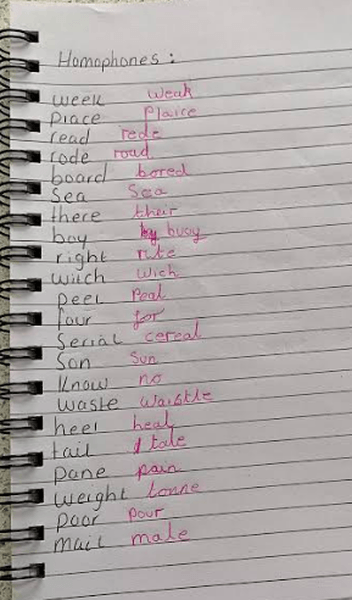 Homophones:
week weak
place plaice
read rede
rode road
board bored
Sea Sea
there their
boy buoy
right rite
witch wich
peel peal
four for
Serial cereal
Son Sun
Know no
waste waistle
heel heal
tail tale
pane pain
weight tonne
poor pour
mail male